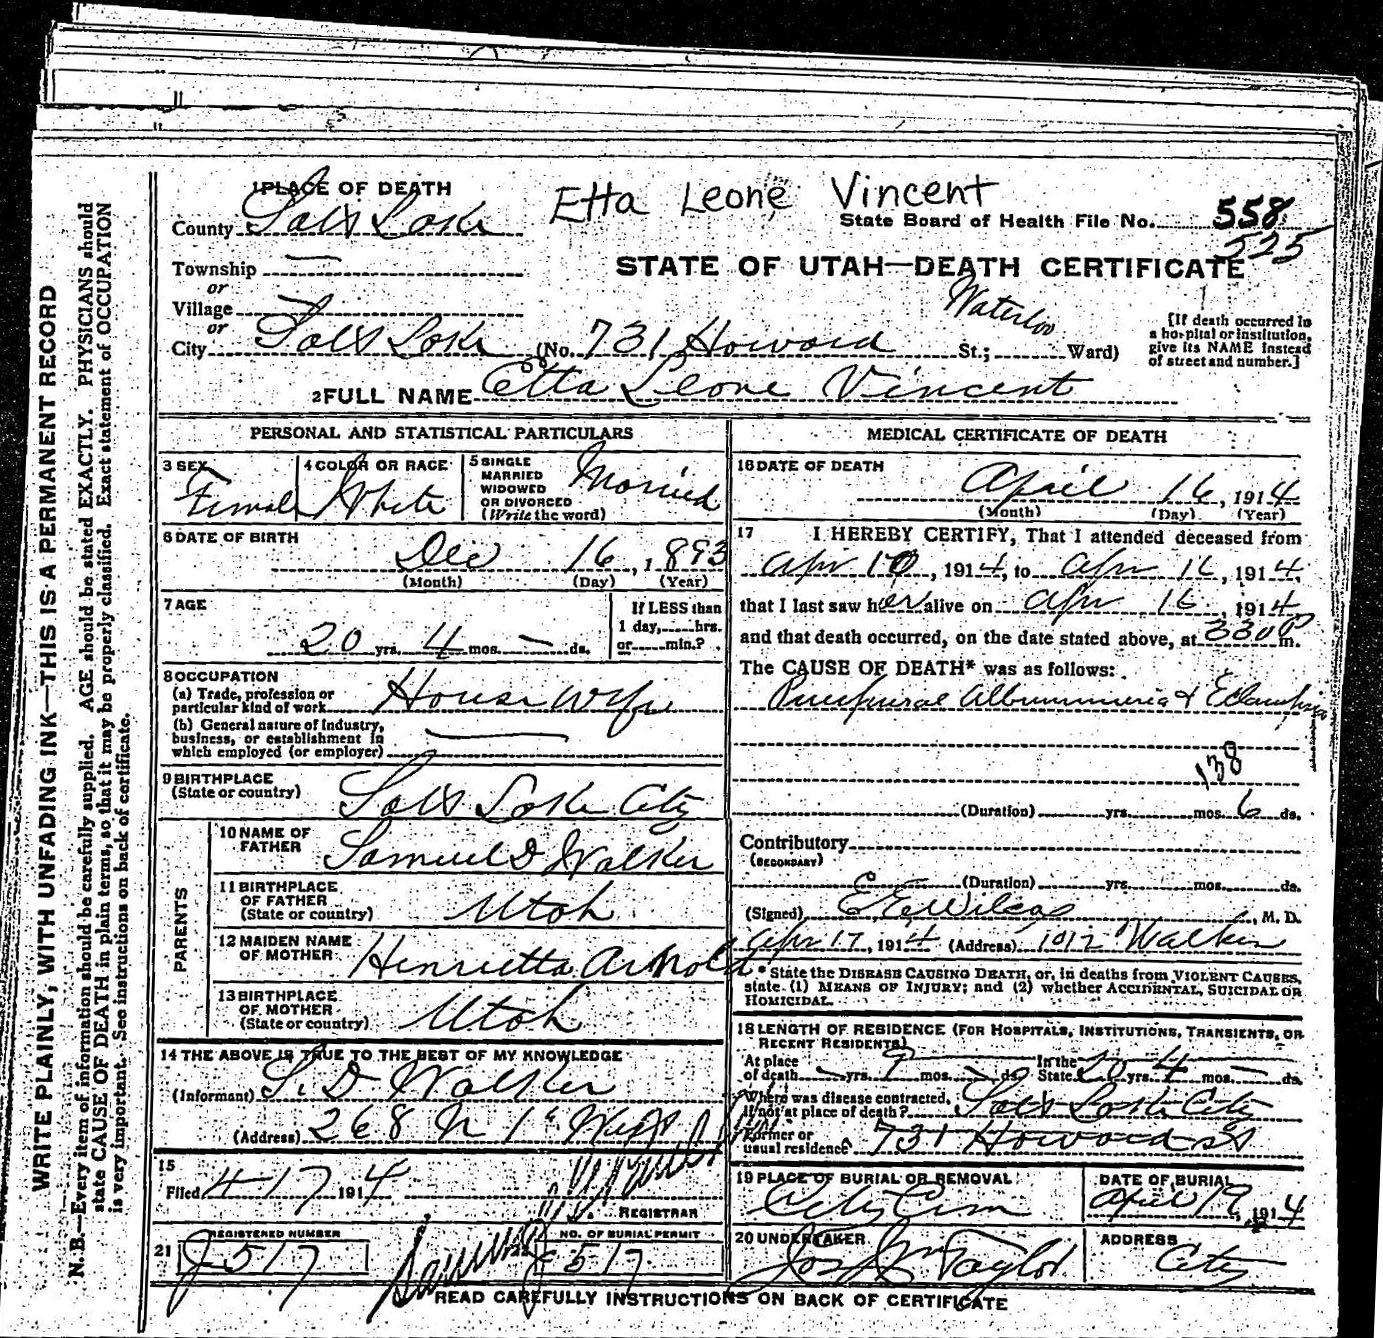 Etta Leone Vincent
1 PLACE OF DEATH
County Salt Lake
State Board of Health File No. 558
525
Township —
or
STATE OF UTAH—DEATH CERTIFICATE
Village —
or
Waterloo
City Salt Lake (No. 731 Howard St.; Ward)
[If death occurred in a hospital or institution, give its NAME instead of street and number.]
2 FULL NAME Etta Leone Vincent
WRITE PLAINLY, WITH UNFADING INK—THIS IS A PERMANENT RECORD
N.B.—Every item of information should be carefully supplied. AGE should be stated EXACTLY. PHYSICIANS should
state CAUSE OF DEATH in plain terms, so that it may be properly classified. Exact statement of OCCUPATION
is very important. See instructions on back of certificate.
PERSONAL AND STATISTICAL PARTICULARS
3 SEX Female
4 COLOR OR RACE White
5 SINGLE MARRIED WIDOWED OR DIVORCED (Write the word) Married
6 DATE OF BIRTH
Dec 16, 1893
(Month) (Day) (Year)
7 AGE
20 yrs. 4 mos. — ds.
If LESS than 1 day, hrs. or min.?
8 OCCUPATION
(a) Trade, profession or particular kind of work House wife
(b) General nature of industry, business, or establishment in which employed (or employer) —
9 BIRTHPLACE
(State or country) Salt Lake City
PARENTS
10 NAME OF FATHER Samuel D Walker
11 BIRTHPLACE OF FATHER (State or country) Utah
12 MAIDEN NAME OF MOTHER Henrietta Arnold
13 BIRTHPLACE OF MOTHER (State or country) Utah
14 THE ABOVE IS TRUE TO THE BEST OF MY KNOWLEDGE
(Informant) S. D Walker
(Address) 268 N 1st West
15
Filed 4-17 1914
REGISTRAR
REGISTERED NUMBER
21 J 517
NO. OF BURIAL PERMIT
22 J 517
MEDICAL CERTIFICATE OF DEATH
16 DATE OF DEATH
April 16, 1914
(Month) (Day) (Year)
17 I HEREBY CERTIFY, That I attended deceased from
Apr 10, 1914, to Apr 16, 1914,
that I last saw her alive on Apr 16, 1914
and that death occurred, on the date stated above, at 330 P m.
The CAUSE OF DEATH* was as follows:
Puerperal Albuminuria & Eclampsia
138
(Duration) yrs. mos. 6 ds.
Contributory
(SECONDARY)
(Duration) yrs. mos. ds.
(Signed) E E Wilcox, M. D.
Apr 17, 1914 (Address) 1012 Walker
* State the DISEASE CAUSING DEATH, or, in deaths from VIOLENT CAUSES,
state (1) MEANS OF INJURY; and (2) whether ACCIDENTAL, SUICIDAL OR
HOMICIDAL.
18 LENGTH OF RESIDENCE (FOR HOSPITALS, INSTITUTIONS, TRANSIENTS, OR
RECENT RESIDENTS)
At place of death — yrs. 9 mos. — ds. In the State 20 yrs. 4 mos. — ds.
Where was disease contracted, if not at place of death? Salt Lake City
Former or usual residence 731 Howard st
19 PLACE OF BURIAL OR REMOVAL
City Cem
DATE OF BURIAL
April 19, 1914
20 UNDERTAKER
Jos Wm Taylor
ADDRESS
City
READ CAREFULLY INSTRUCTIONS ON BACK OF CERTIFICATE